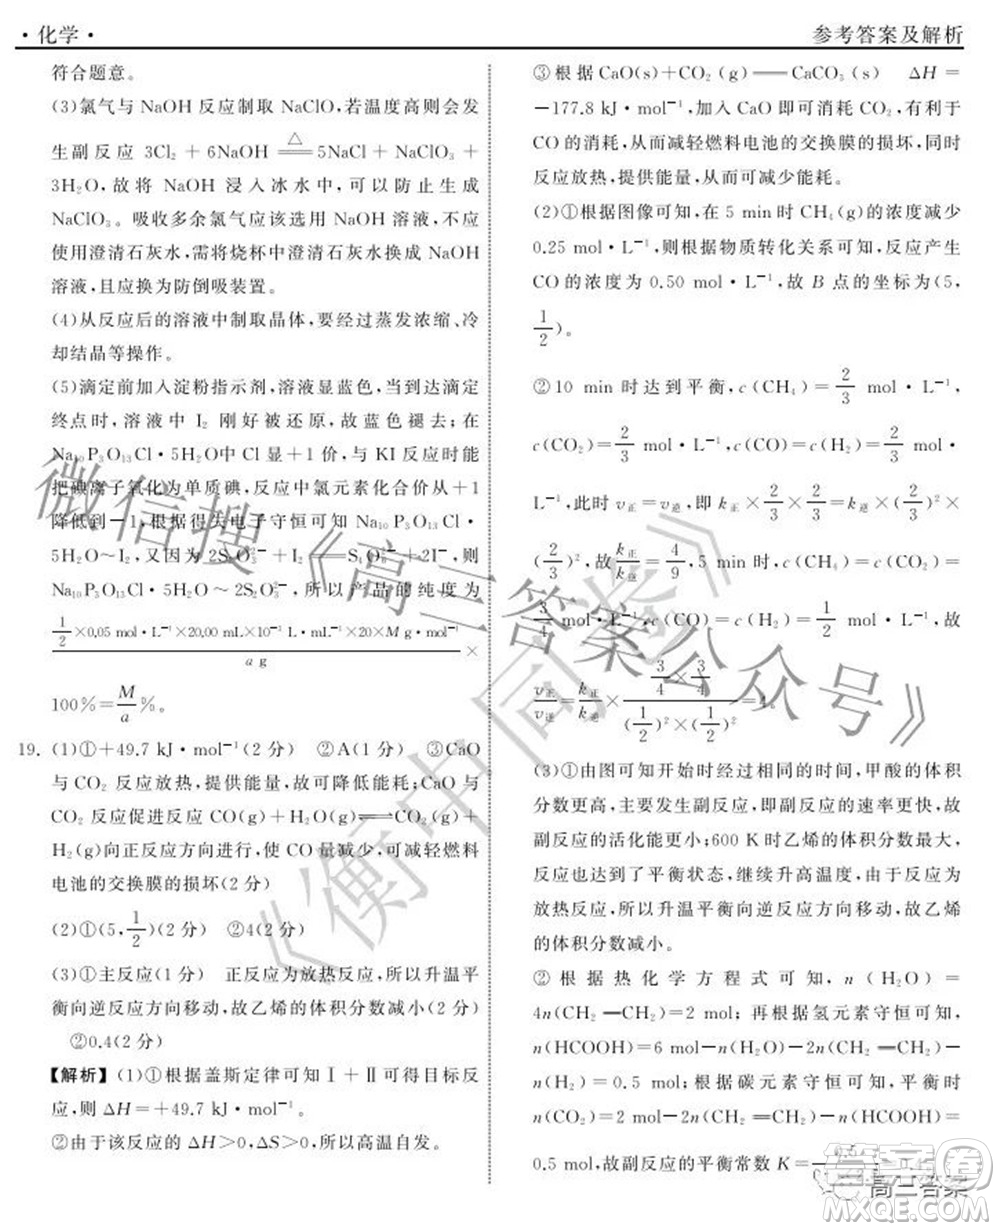 ·化学·
参考答案及解析
符合题意。
(3)氯气与 NaOH 反应制取 NaClO,若温度高则会发
生副反应 3Cl₂ + 6NaOH ══△══ 5NaCl + NaClO₃ +
3H₂O,故将 NaOH 浸入冰水中,可以防止生成
NaClO₃。吸收多余氯气应该选用 NaOH 溶液,不应
使用澄清石灰水,需将烧杯中澄清石灰水换成 NaOH
溶液,且应换为防倒吸装置。
(4)从反应后的溶液中制取晶体,要经过蒸发浓缩、冷
却结晶等操作。
(5)滴定前加入淀粉指示剂,溶液显蓝色,当到达滴定
终点时,溶液中 I₂ 刚好被还原,故蓝色褪去;在
Na₁₀P₃O₁₃Cl·5H₂O 中 Cl 显+1 价,与 KI 反应时只
能把碘离子氧化为单质碘,反应中氯元素化合价从+1
降低到-1,根据得失电子守恒可知 Na₁₀P₃O₁₃Cl·
5H₂O~I₂,又因为 2S₂O₃²⁻+I₂══S₄O₆²⁻+2I⁻,则
Na₁₀P₃O₁₃Cl·5H₂O~2S₂O₃²⁻,故产品的纯度为
1/2×0.05 mol·L⁻¹×20.00 mL×10⁻³ L·mL⁻¹×20×M g·mol⁻¹ / a g ×
100%=M/a%。
19. (1)①+49.7 kJ·mol⁻¹(2 分) ②A(1 分) ③CaO
与 CO₂ 反应放热,提供能量,故可降低能耗;CaO 与
CO₂ 反应促进反应 CO(g)+H₂O(g)⇌CO₂(g)+
H₂(g)向正反应方向进行,使 CO 量减少,可减轻燃料
电池的交换膜的损坏(2 分)
(2)①(5,1/2)(2 分) ②4(2 分)
(3)①主反应(1 分) 正反应为放热反应,所以升温平
衡向逆反应方向移动,故乙烯的体积分数减小(2 分)
②0.4(2 分)
【解析】(1)①根据盖斯定律可知Ⅰ+Ⅱ可得目标反
应,则 ΔH=+49.7 kJ·mol⁻¹。
②由于该反应的 ΔH>0,ΔS>0,所以高温自发。
③根据 CaO(s)+CO₂(g)══CaCO₃(s) ΔH=
-177.8 kJ·mol⁻¹,加入 CaO 即可消耗 CO₂,有利于
CO 的消耗,从而减轻燃料电池的交换膜的损坏,同时
反应放热,提供能量,故可减少能耗。
(2)①根据图像可知,在 5 min 时 CH₄(g)的浓度减少
0.25 mol·L⁻¹,则根据物质转化关系可知,反应产生
CO 的浓度为 0.50 mol·L⁻¹,故 B 点的坐标为(5,
1/2)。
②10 min 时达到平衡,c(CH₄)=2/3 mol·L⁻¹,
c(CO₂)=2/3 mol·L⁻¹,c(CO)=c(H₂)=2/3 mol·
L⁻¹,此时 v正=v逆,即 k正×2/3×2/3=k逆×(2/3)²×
(2/3)²,故k正/k逆=4/9,5 min 时,c(CH₄)=c(CO₂)=
3/4 mol·L⁻¹,c(CO)=c(H₂)=1/2 mol·L⁻¹,故
v正/v逆=k正/k逆×(3/4×3/4)/((1/2)²×(1/2)²)=4。
(3)①由图可知开始时经过相同的时间,甲酸的体积
分数更高,主要发生副反应,即副反应的速率更快,故
副反应的活化能更小;600 K 时乙烯的体积分数最大,
反应达到了平衡状态,继续升高温度,由于该反应为
放热反应,所以升温平衡向逆反应方向移动,故乙烯
的体积分数减小。
②根据热化学方程式可知,n(H₂O)=
4n(CH₂═CH₂)=2 mol;再根据氢元素守恒可知,
n(HCOOH)=6 mol-n(H₂O)-2n(CH₂═CH₂)
=0.5 mol;根据碳元素守恒可知,
n(CO₂)=2 mol-2n(CH₂═CH₂)-n(HCOOH)=
0.5 mol,故副反应的平衡常数 K=
微信搜《高三答案公众号》
《衡中同卷》
答案圈
高三答案
MXQE.COM